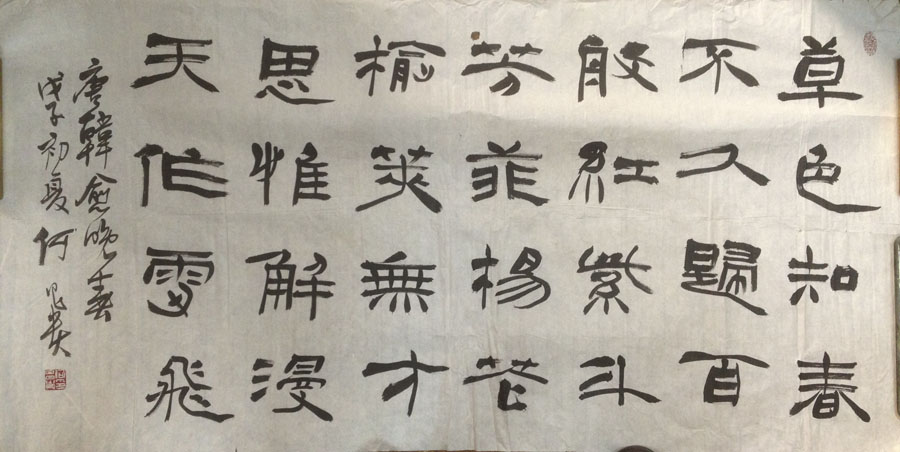 草色知春
不久歸百
般紅紫斗
芳菲楊花
榆莢無才
思惟解漫
天作雪飛
唐韓愈晚春
戊子初夏何